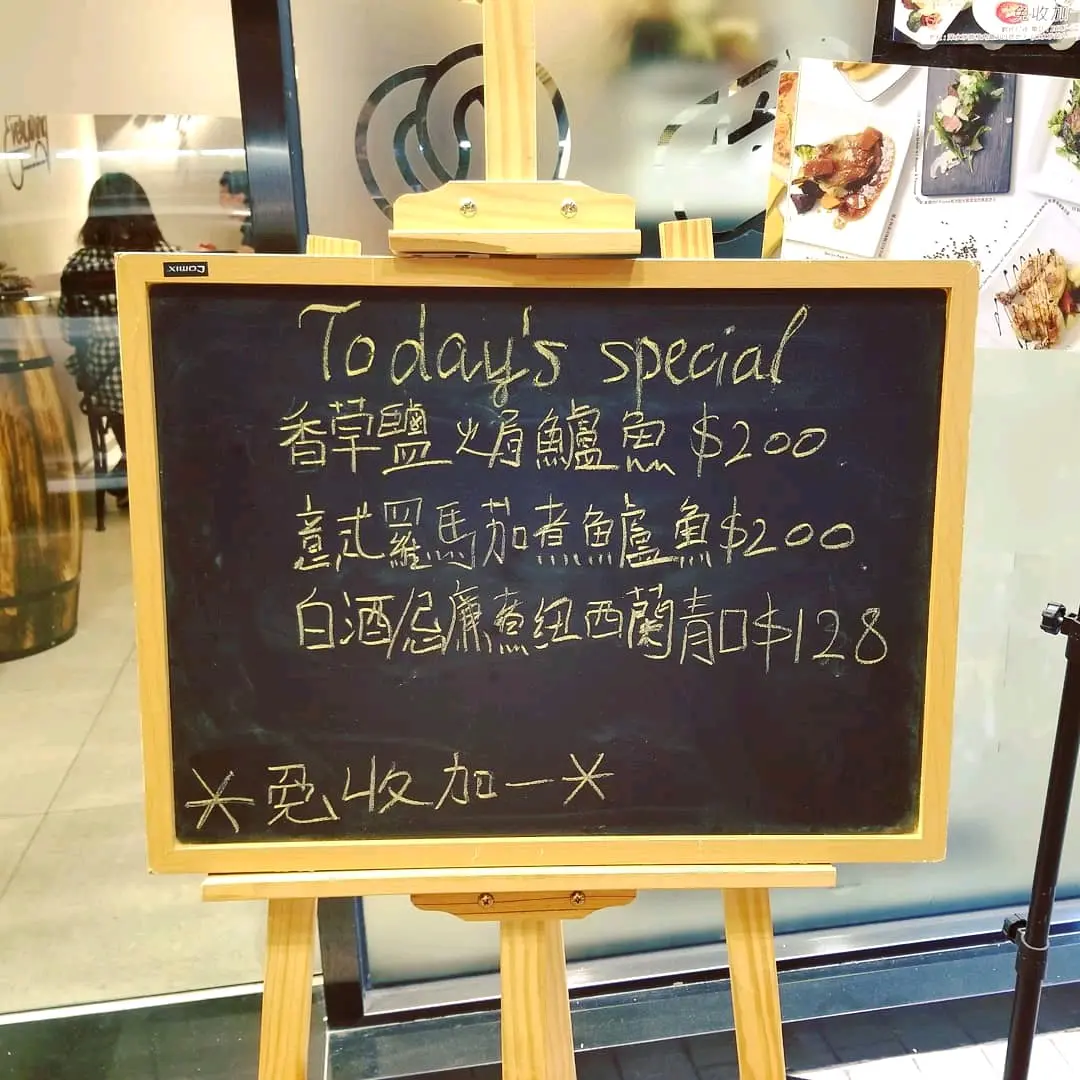 免收加
COMIX
Today's special
香草鹽焗鱸魚 $200
意式羅馬茄煮鱸魚 $200
白酒忌廉煮紐西蘭青口 $128
*免收加一*